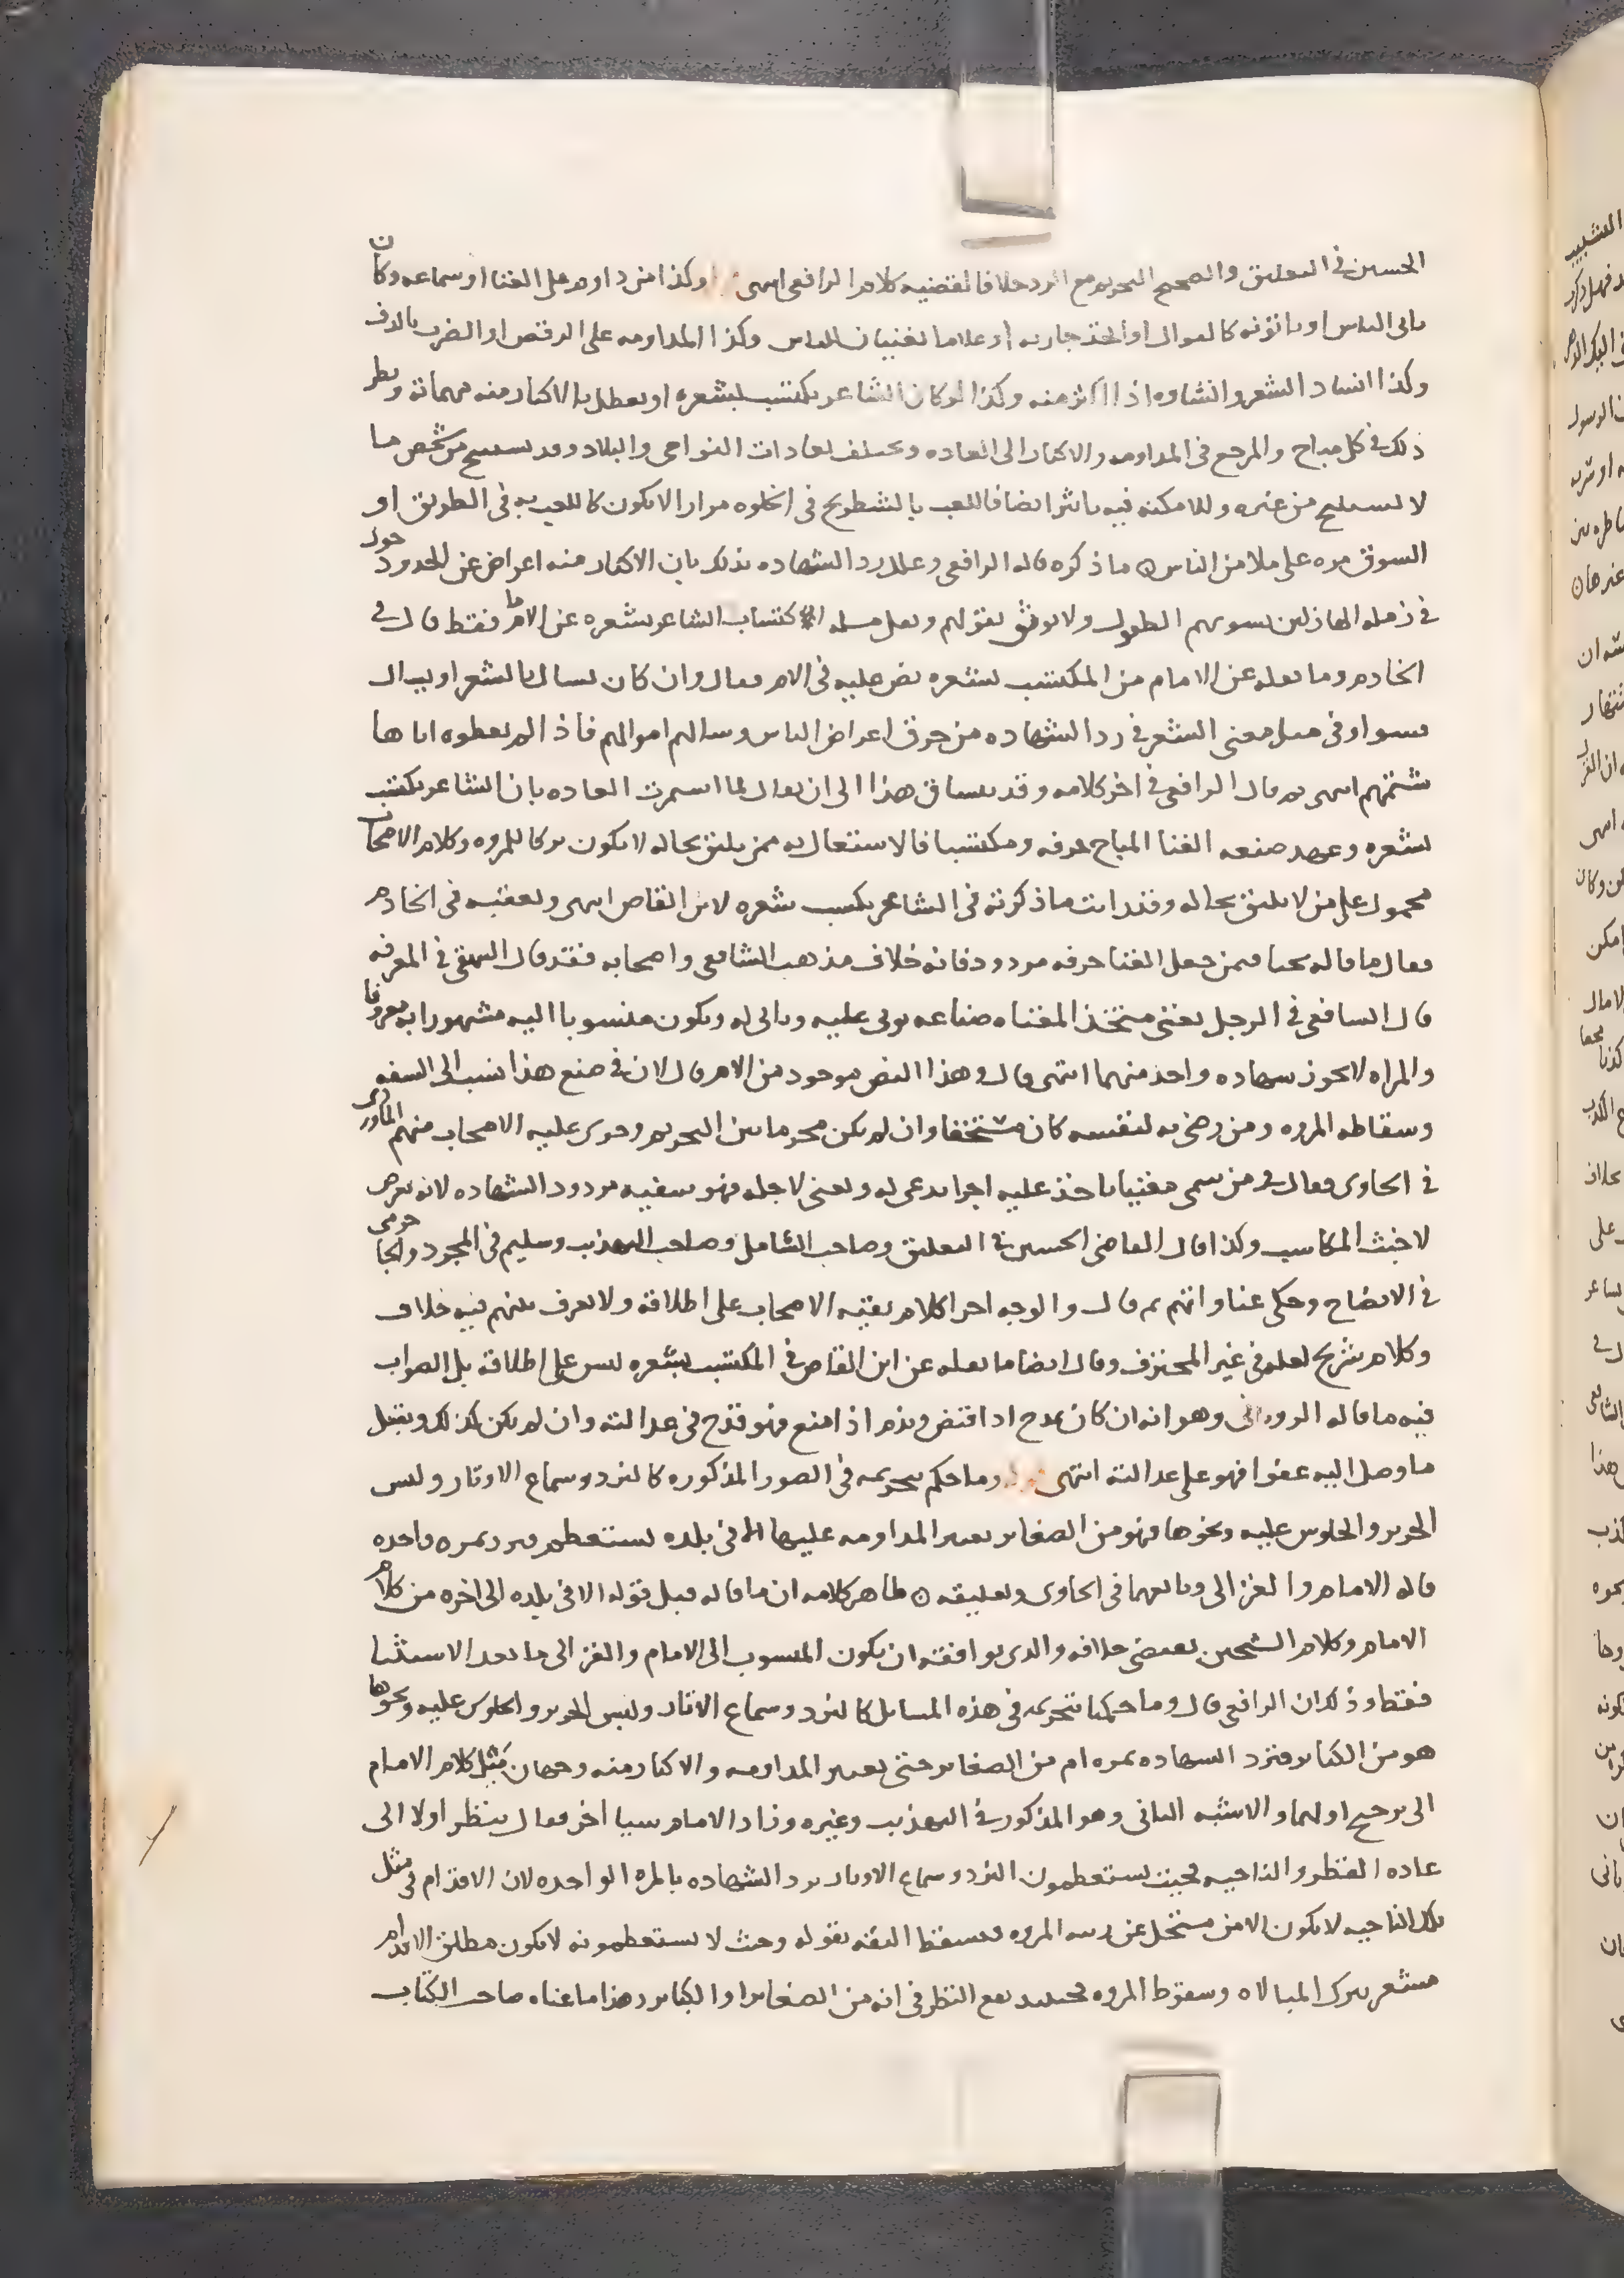 الحسين في التعليق والصحيح التحريم مع الرد خلافا لقضيه كلام الرافعي انتهى وكذا من داوم على الغنا او سماعه وكان
ياتي الناس او ياتونه كالقوال او اتخذ جاريه او غلاما لغنيان للناس وكذا المداومه على الرقص او الضرب بالدف
وكذا انشاد الشعر وانشاوه اذا اكثر منه وكذا لو كان الشاعر يكتسب بشعره او يعطل بالاكثار منه مهماته ويطر
ذلك في كل مباح والمرجع في المداومه والاكثار الى العاده ويختلف بعادات النواحي والبلاد وقد يستقبح من شخص ما
لا يستقبح من غيره وللامكنه فيه تاثير ايضا فاللعب بالشطرنج في الخلوه مرارا لا يكون كاللعب به في الطريق او
السوق مره على ملا من الناس ما ذكره قاله الرافعي وعلل رد الشهاده بذلك بان الاكثار منه اعراض عن الحدود خول
في زمله الهازلين بسومهم الطول ولا يوثق بقولهم ونقل مسله اكتساب الشاعر بشعره عن الامام فقط قال في
الخادم وما نقله عن الامام من المكتسب بشعره نص عليه في الام فقال وان كان يسال بالشعر او يسال
فسوا وفي مثل معنى الشعر في رد الشهاده من خرق اعراض الناس وسالهم اموالهم فاذا لم يعطوه اياها
شتمهم انتهى ثم قال الرافعي في اخر كلامه وقد ينساق هذا الى ان يقال لما استمرت العاده بان الشاعر يكتسب
بشعره وعهد صنعه الغنا المباح حرفه ومكتسبا فالاشتغال به ممن يليق بحاله لا يكون تركا للمروه وكلام الاصحاب
محمول على من لا يليق بحاله وقد رايت ما ذكرته في الشاعر يكسب بشعره لابن القاص انتهى وتعقبه في الخادم
فقال ما قاله بحثا فيمن جعل الغنا حرفه مردود فانه خلاف مذهب الشافعي واصحابه فقد قال البيهقي في المعرفه
قال الشافعي في الرجل يغني متخذ الغناه صناعه يوتى عليه وياتي له ويكون منسوبا اليه مشهورا به معروفا
والمراه لا تجوز شهاده واحد منهما انتهى قال وهذا النص موجود من الام قال لان في صنع هذا نسب الى السفه
وسقاطه المروه ومن رضي به لنفسه كان مستخفا وان لم يكن محرما بين التحريم وجرى عليه الاصحاب منهم الماوردي
في الحاوي فقال في من سمى مغنيا ياخذ عليه اجرا يدعى له ويغنى لاجله فهو سفيه مردود الشهاده لانه تعرض
لاخبث المكاسب وكذا قال القاضي الحسين في التعليق وصاحب الشامل وصاحب التهذيب وسليم في المجرد والجاجرمي
في الايضاح وحكى عنا وانهم ثم قال والوجه اجرا كلام بقيه الاصحاب على اطلاقه ولا نعرف بينهم فيه خلاف
وكلام شريح لعله في غير المحترف وقال ايضا ما نقله عن ابن القاص في المكتسب بشعره ليس على اطلاقه بل الصواب
فيه ما قاله الروياني وهو انه ان كان يمدح اذا اقتضى ويذم اذا منع فهو قدح في عدالته وان لم يكن كذلك ويقبل
ما وصل اليه عفوا فهو على عدالته انتهى وما حكم بتحريمه في الصور المذكوره كالنرد وسماع الاوتار ولبس
الحرير والجلوس عليه ونحوها فهو من الصغاير يعتبر المداومه عليها الا في بلده يستعظم فيرد بمره واحده
قاله الامام والغزالي وتابعهما في الحاوي وتعليقه ظاهر كلامه ان ما قاله قبل قوله الا في بلده الى اخره من كلام
الامام وكلام الشيخين يقتضي خلافه والذي يوافقه ان يكون المنسوب الى الامام والغزالي ما بعد الاستثنا
فقط وذلك ان الرافعي قال وما حكمنا بتحريمه في هذه المسائل كالنرد وسماع الاوتار ولبس الحرير والجلوس عليه ونحوها
هو من الكباير فترد الشهاده بمره ام من الصغاير حتى يعتبر المداومه والاكثار منه وجهان يميل كلام الامام
الى ترجيح اولهما والاشبه الثاني وهو المذكور في التهذيب وغيره وزاد الامام شيا اخر فقال ينظر اولا الى
عاده القطر والناحيه فحيث يستعظمون النرد وسماع الاوتار ترد الشهاده بالمره الواحده لان الاقدام في مثل
تلك الناحيه لا يكون الا من منحل عن ربقه المروه فتسقط الثقه بقوله وحيث لا يستعظمونه لا يكون مطلق الاقدام
مشعر بترك المبالاه وسقوط المروه فحينيذ يقع النظر في انه من الصغاير او الكباير وهذا ما عناه صاحب الكتاب